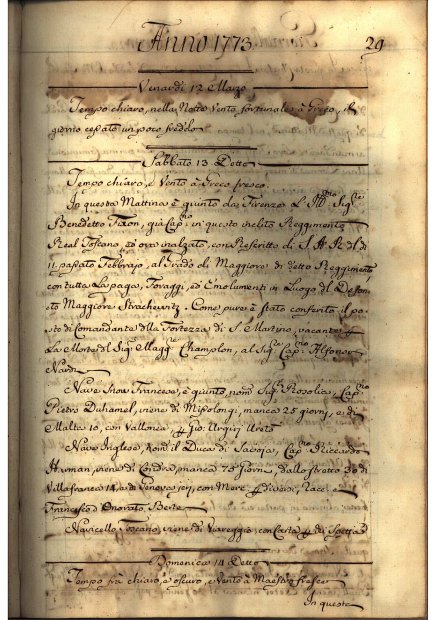 Anno 1773 29
Venardi 12 Marzo
Tempo chiaro, nella Notte Vento fortunale à Greco, il
giorno cessato un poco freddo
Sabbato 13 Detto
Tempo chiaro, e Vento à Greco fresco
In questa Mattina è giunto da Firenze L' Sig.re
Benedetto già Cap.no in questo inclito Reggimento
Real Toscano, ed ora inalzato, con Rescritto di S. A. R. di dì
11 passato Febbrajo, al Grado di Maggiore di detto Reggimento
con tutta La paga, Foraggi, ed Emolumenti in Luogo del Defon
to Maggiore Come pure è stato conferito il po
sto di Comandante della Fortezza di S. Martino, vacante
La Morte del Sig.re Magg.re Champlon, al Sig.re Cap.no Alfonso
Nardi
Nave Snow Francese, è giunto, nom.o Sig.ra Rosolia, Cap.no
Pietro Duhamel, viene di Missolongi, manca 25 giorni, e di
Malta 10, con Vallonea,
Nave Inglese, Nom. il Duca di Savoja, Cap.no Riccardo
viene di Londra, manca 75 giorni, dallo stretto 30 di
Villafranca 14, e di Genova jeri, con Merc. diversi, Racc. a
Francesco d' Onorato Berte
Navicello Toscano, viene di Viareggio, con
Domenica 14 Detto
Tempo frà chiaro, e oscuro, e Vento à Maestro fresco
In questa